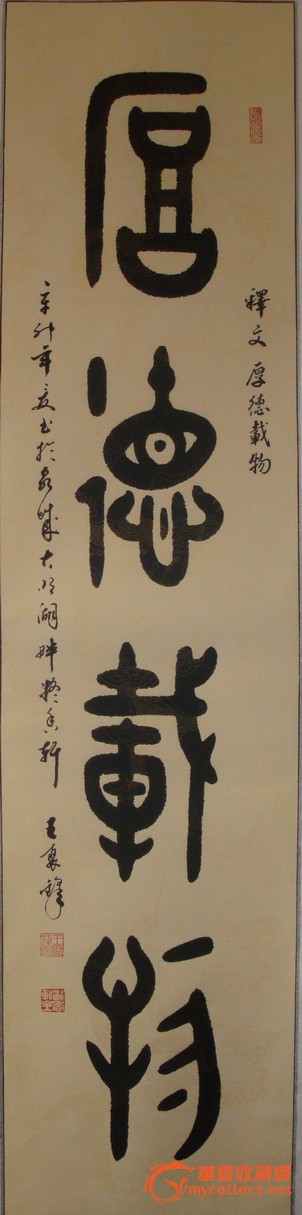 厚德載物
釋文 厚德載物
辛卯年夏書於泉城大明湖畔 香軒 王泉鋒
華夏收藏網
mycollect.net